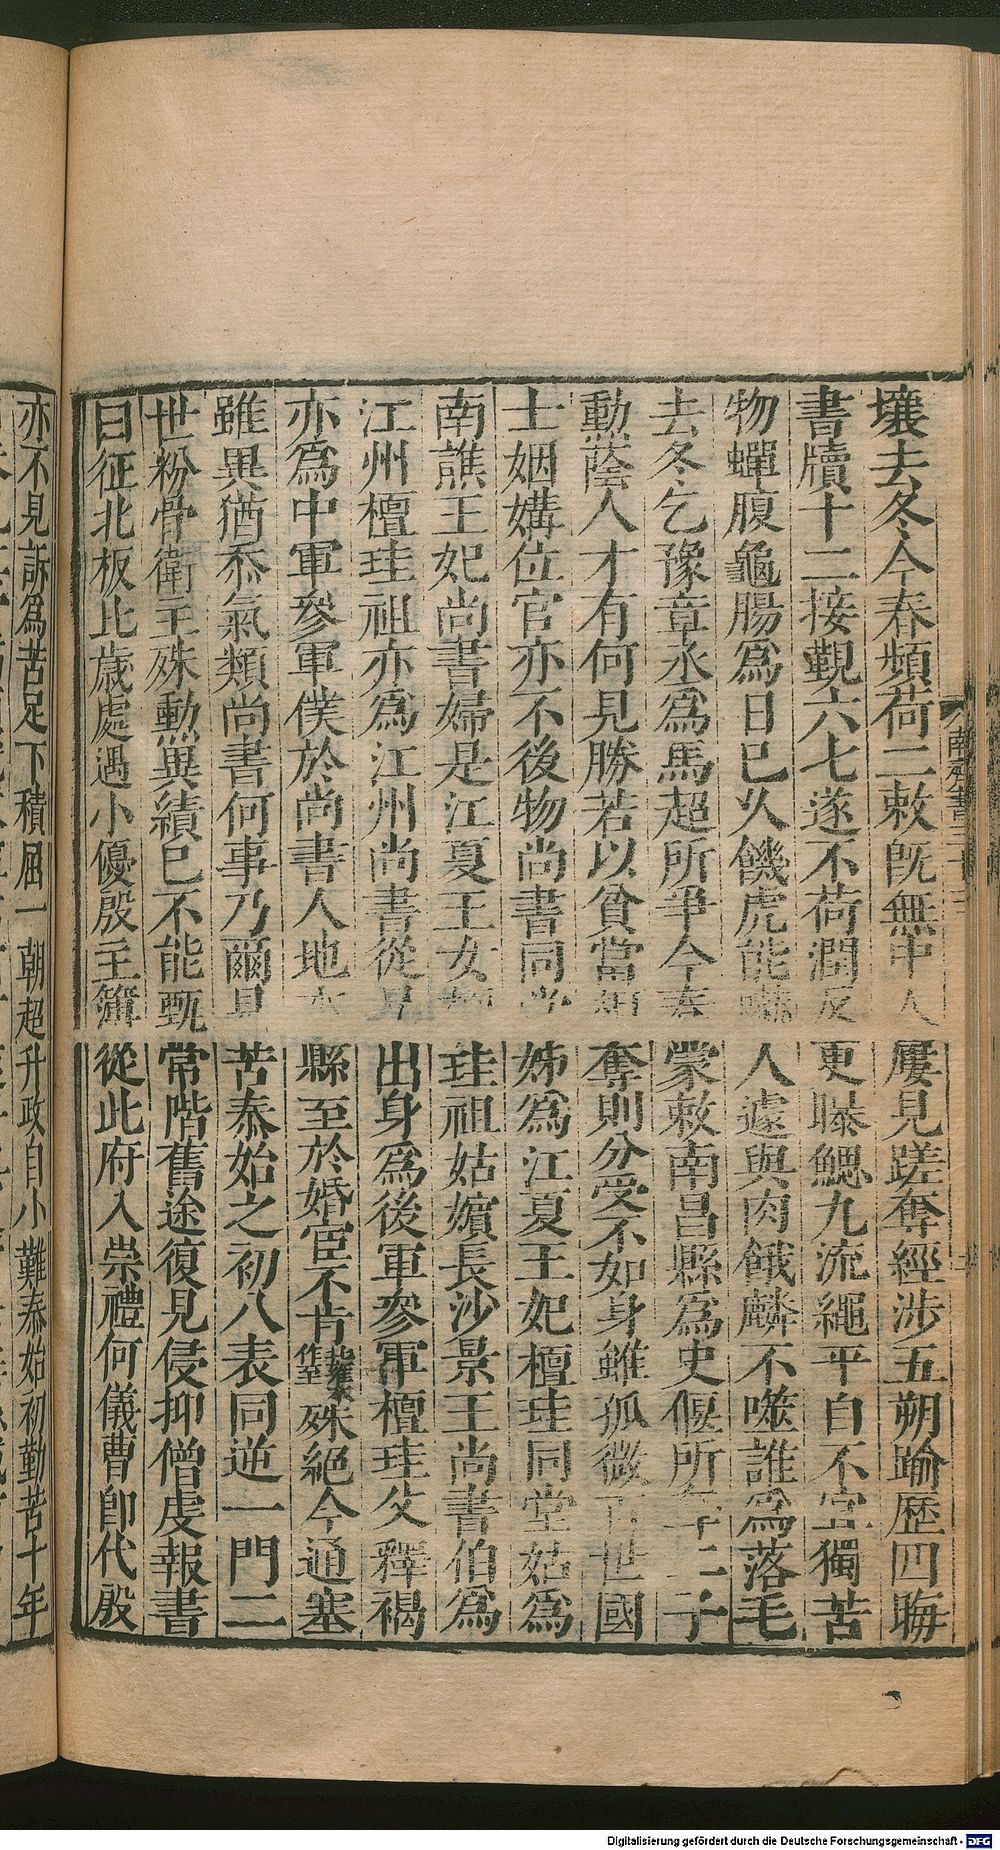 壤去冬今春頻荷二敕既無中人屢見蹉奪經涉五朔踰歷四晦
書牘十二接覲六七遂不荷潤反更曝鰓九流繩平自不宜獨苦
物蟬腹龜腸為日已乆饑虎能嚇人遽與肉餓麟不噬誰為落毛
去冬乞豫章丞為馬超所爭今春蒙敕南昌縣為史偃所奪二子
勳蔭人才有何見勝若以貧富相奪則分受不如身雖孤微百世國
士姻媾位官亦不後物尚書同堂姊為江夏王妃檀珪同堂姑為
南譙王妃尚書婦是江夏王女檀珪祖姑嬪長沙景王尚書伯為
江州檀珪祖亦為江州尚書從兄出身為後軍參軍檀珪父釋褐
亦為中軍參軍僕於尚書人地本縣至於婚宦不肯殊絕今通塞
雖異猶忝氣類尚書何事乃爾見苦泰始之初八表同逆一門二
世粉骨衛主殊勳異績已不能甄常階舊途復見侵抑僧虔報書
曰征北板比歲處遇小優殷主簿從此府入崇禮何儀曹即代殷
亦不見訴為苦足下積屈一朝超升政自小難泰始初勤苦十年
南齊書三十三
Digitalisierung gefördert durch die Deutsche Forschungsgemeinschaft - DFG